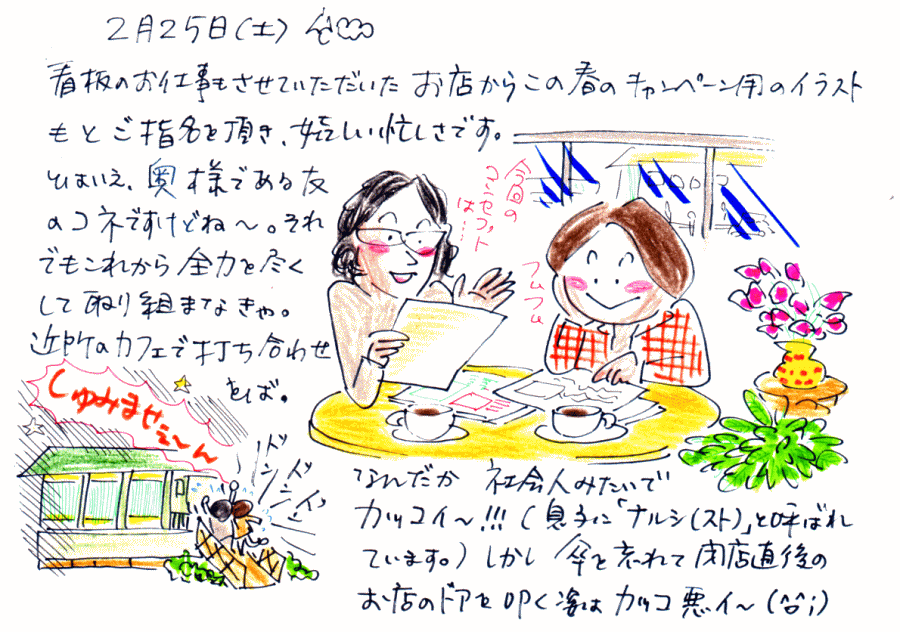 2月25日(土)
看板のお仕事もさせていただいた お店からこの春のキャンペーン用のイラスト
もとご指名を頂き、嬉しい忙しさです。
とはいえ、奥様である友
のコネですけどね〜。それ
でもこれから全力を尽く
して取り組まなきゃ。
近所のカフェで打ち合わせ
をば。
今回の
コンセプト
は…
フムフム
しゅみませぇ〜ん
ドンドン
ドンドン
なんだか 社会人みたいで
カッコイ〜!!!(息子に「ナルシ(スト)」と呼ばれ
ています。)しかし 傘を忘れて 閉店直後の
お店のドアを叩く姿は カッコ悪イ〜(^^;)